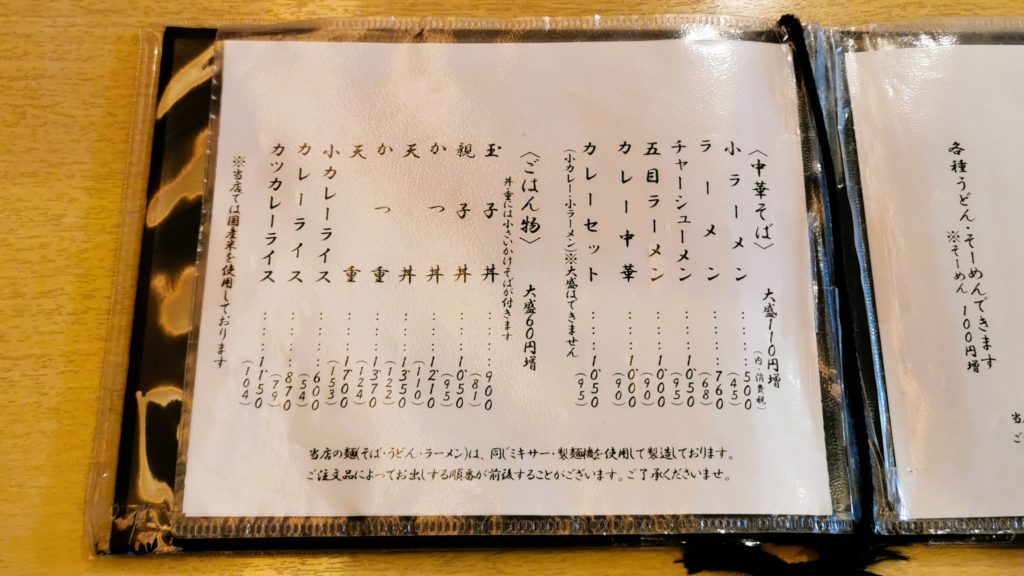 各種うどん・そーめんできます
※そーめん 100円増
〈中華そば〉 大盛110円増
(内・消費税)
小ラーメン ……500 (45)
ラーメン ……760 (68)
チャーシューメン ……1,050 (95)
五目ラーメン ……1,000 (90)
カレー中華 ……1,000 (90)
カレーセット ……1,050 (95)
(小カレー・小ラーメン)※大盛はできません
〈ごはん物〉 大盛60円増
丼重には小さいかけそばが付きます
玉子丼 ……900 (81)
親子丼 ……1,050 (95)
かつ丼 ……1,210 (110)
天丼 ……1,350 (122)
かつ重 ……1,370 (124)
天重 ……1,700 (153)
小カレーライス ……600 (54)
カレーライス ……870 (79)
カツカレーライス ……1,150 (104)
※当店では国産米を使用しております
当店の麺(そば・うどん・ラーメン)は、同じミキサー・製麺機を使用して製造しております。
ご注文品によってお出しする順番が前後することがございます。ご了承くださいませ。